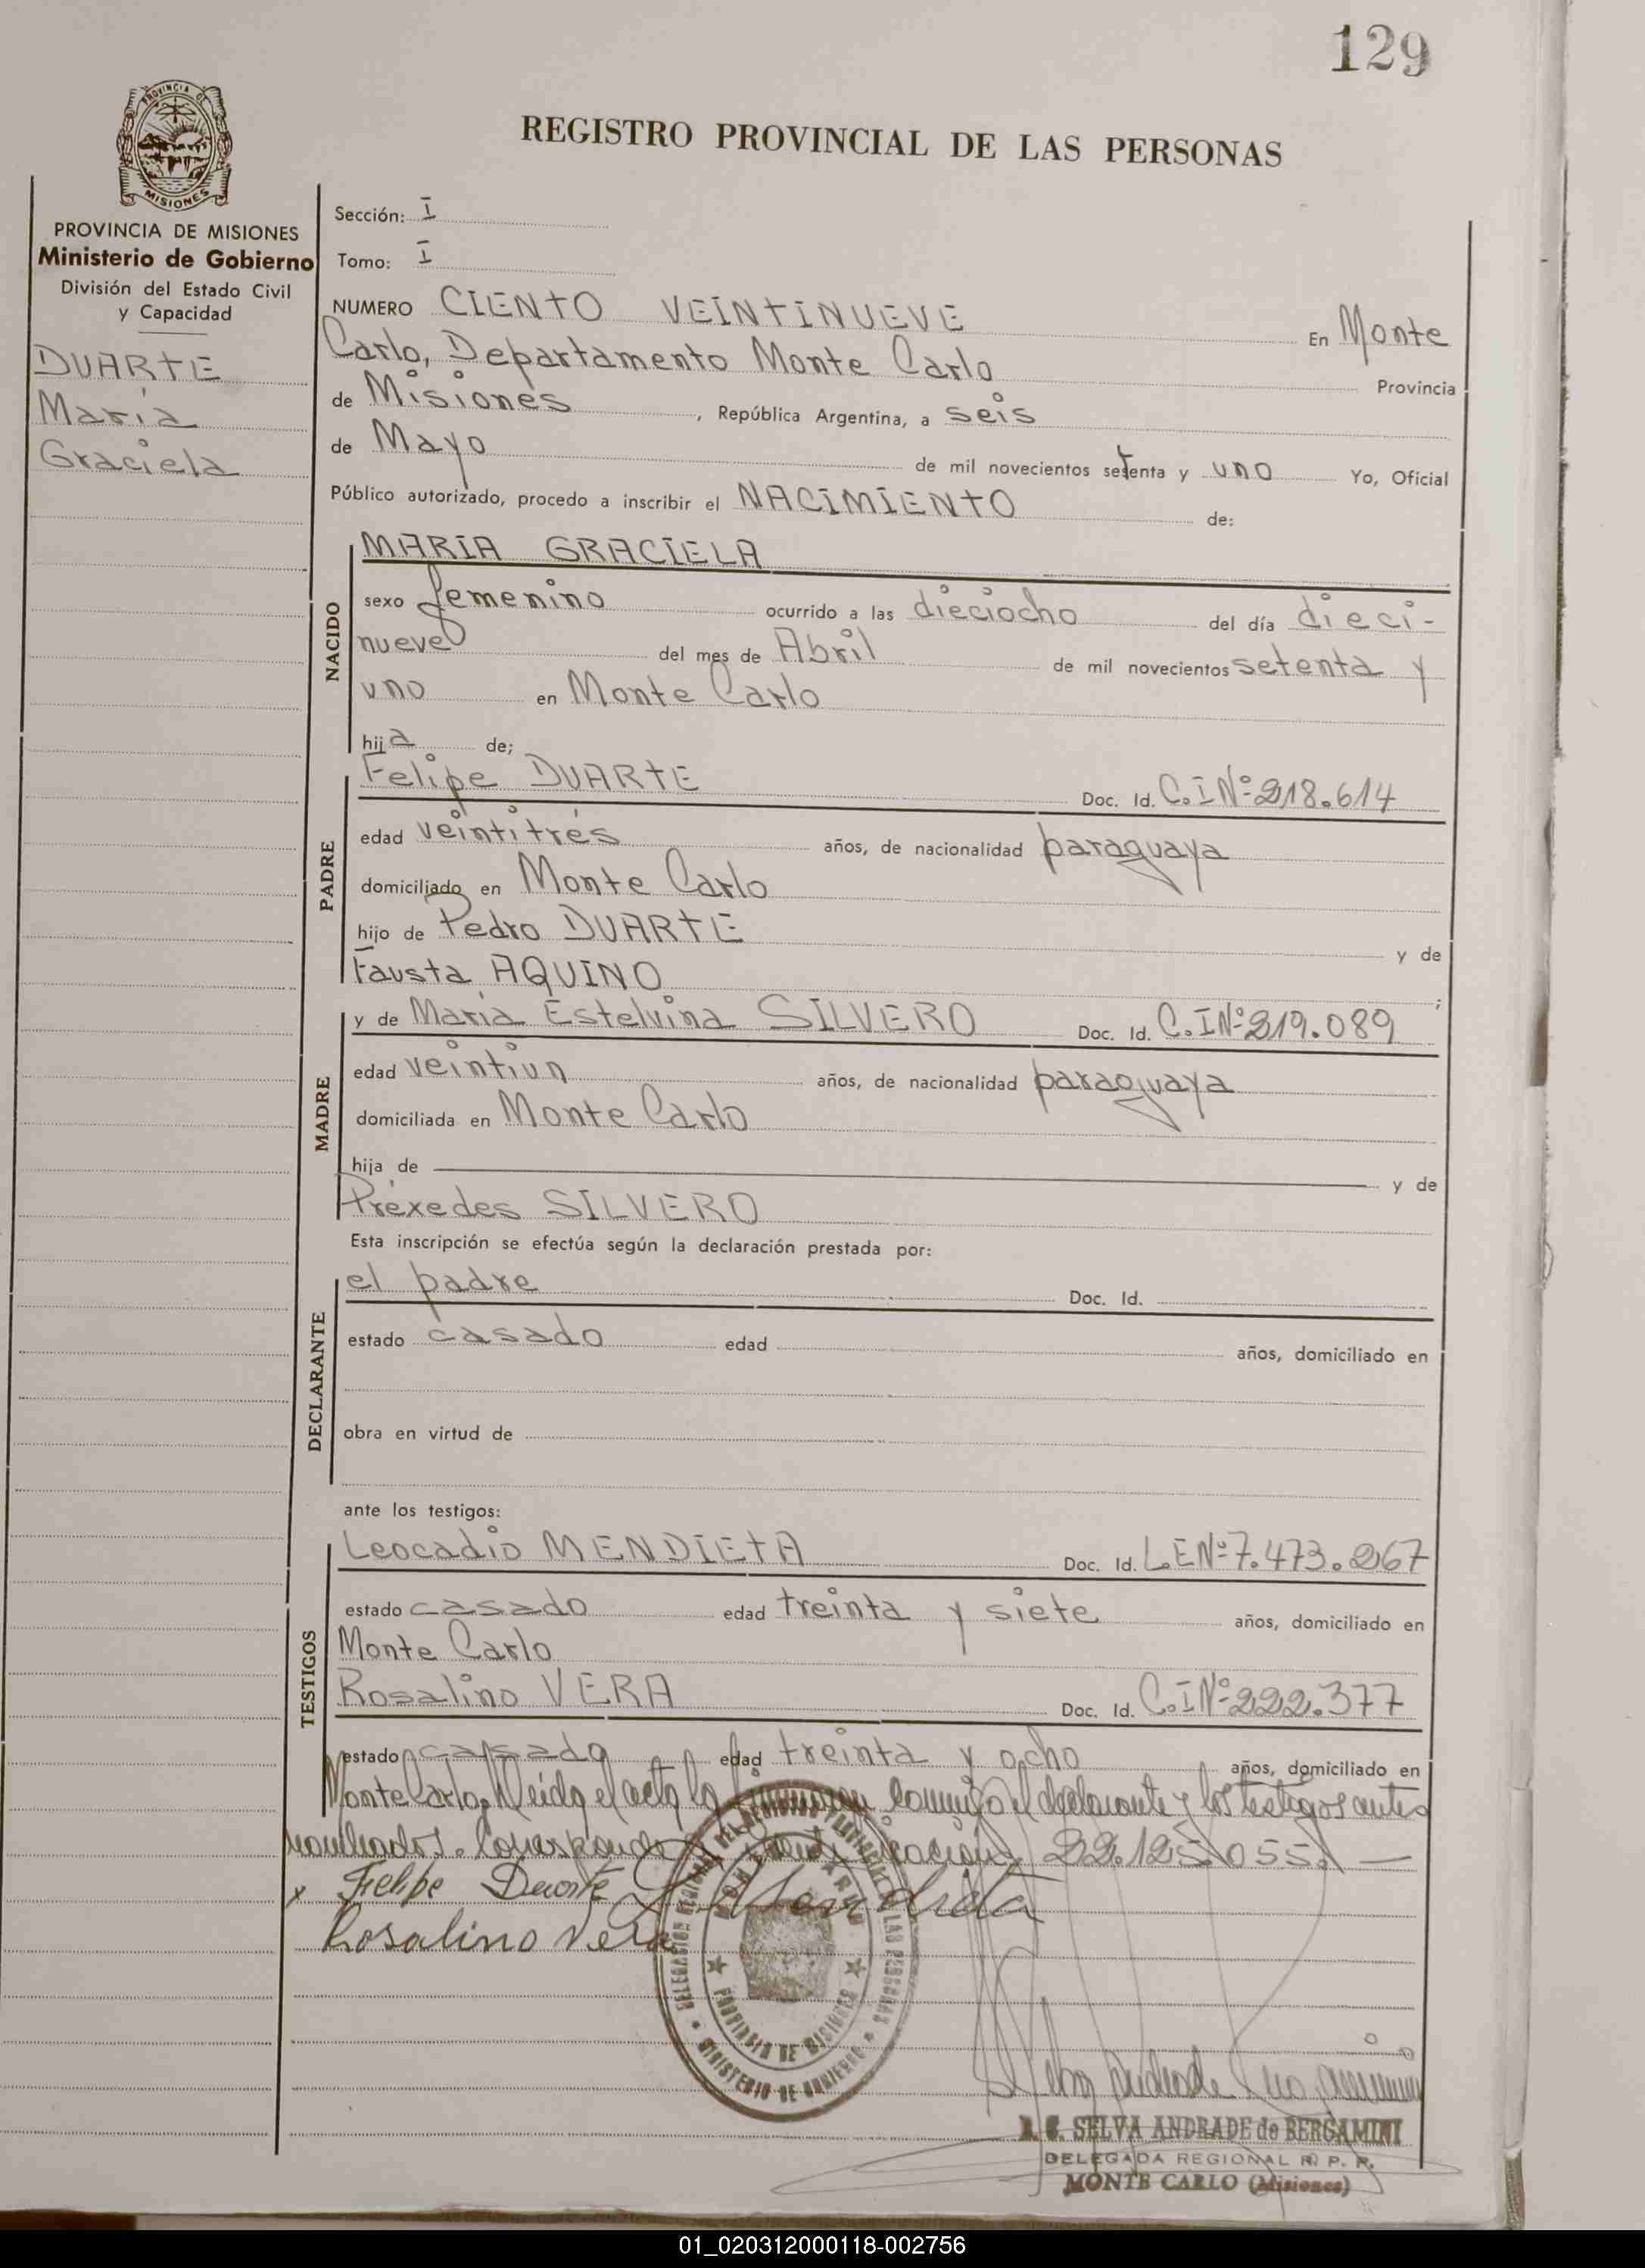 129
REGISTRO PROVINCIAL DE LAS PERSONAS
PROVINCIA DE MISIONES
Ministerio de Gobierno
División del Estado Civil
y Capacidad
DUARTE
María
Graciela
Sección: I
Tomo: I
NUMERO CIENTO VEINTINUEVE En Monte
Carlo, Departamento Monte Carlo Provincia
de Misiones, República Argentina, a seis
de Mayo de mil novecientos setenta y uno Yo, Oficial
Público autorizado, procedo a inscribir el NACIMIENTO de:
NACIDO
MARIA GRACIELA
sexo femenino ocurrido a las dieciocho del día dieci-
nueve del mes de Abril de mil novecientos setenta y
uno en Monte Carlo
hija de;
PADRE
Felipe DUARTE Doc. Id. C.I Nº 218.614
edad veintitrés años, de nacionalidad paraguaya
domiciliado en Monte Carlo
hijo de Pedro DUARTE y de
Fausta AQUINO ;
MADRE
y de María Estelvina SILVERO Doc. Id. C.I Nº 219.089
edad veintiun años, de nacionalidad paraguaya
domiciliada en Monte Carlo
hija de y de
Préxedes SILVERO
Esta inscripción se efectúa según la declaración prestada por:
DECLARANTE
el padre Doc. Id.
estado casado edad años, domiciliado en
obra en virtud de
ante los testigos:
TESTIGOS
Leocadio MENDIETA Doc. Id. L.E Nº 7.473.267
estado casado edad treinta y siete años, domiciliado en
Monte Carlo
Rosalino VERA Doc. Id. C.I Nº 222.377
estado casado edad treinta y ocho años, domiciliado en
Monte Carlo. Leida el acta la firman conmigo el declarante y los testigos antes
nombrados. Corresponde 22.125.055. —
x Felipe Duarte Mendieta
Rosalino Vera
PROVINCIA DE MISIONES
MINISTERIO DE GOBIERNO
SELVA ANDRADE de BERGAMINI
DELEGADA REGIONAL R. P. P.
MONTE CARLO (Misiones)
01_020312000118-002756